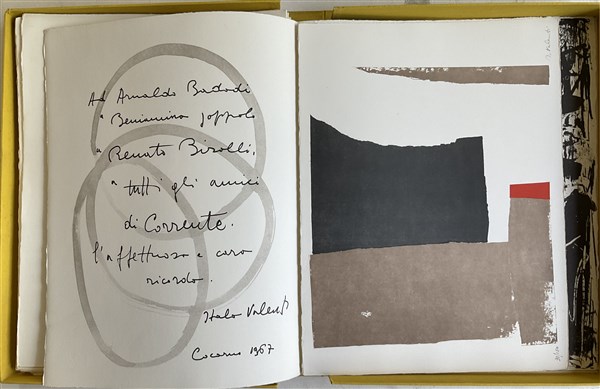 Ad Arnaldo Badodi
a Beniamino Joppolo
a Renato Birolli,
a tutti gli amici
di Corrente.
l'affettuoso e caro
ricordo.
Italo Valenti
1967